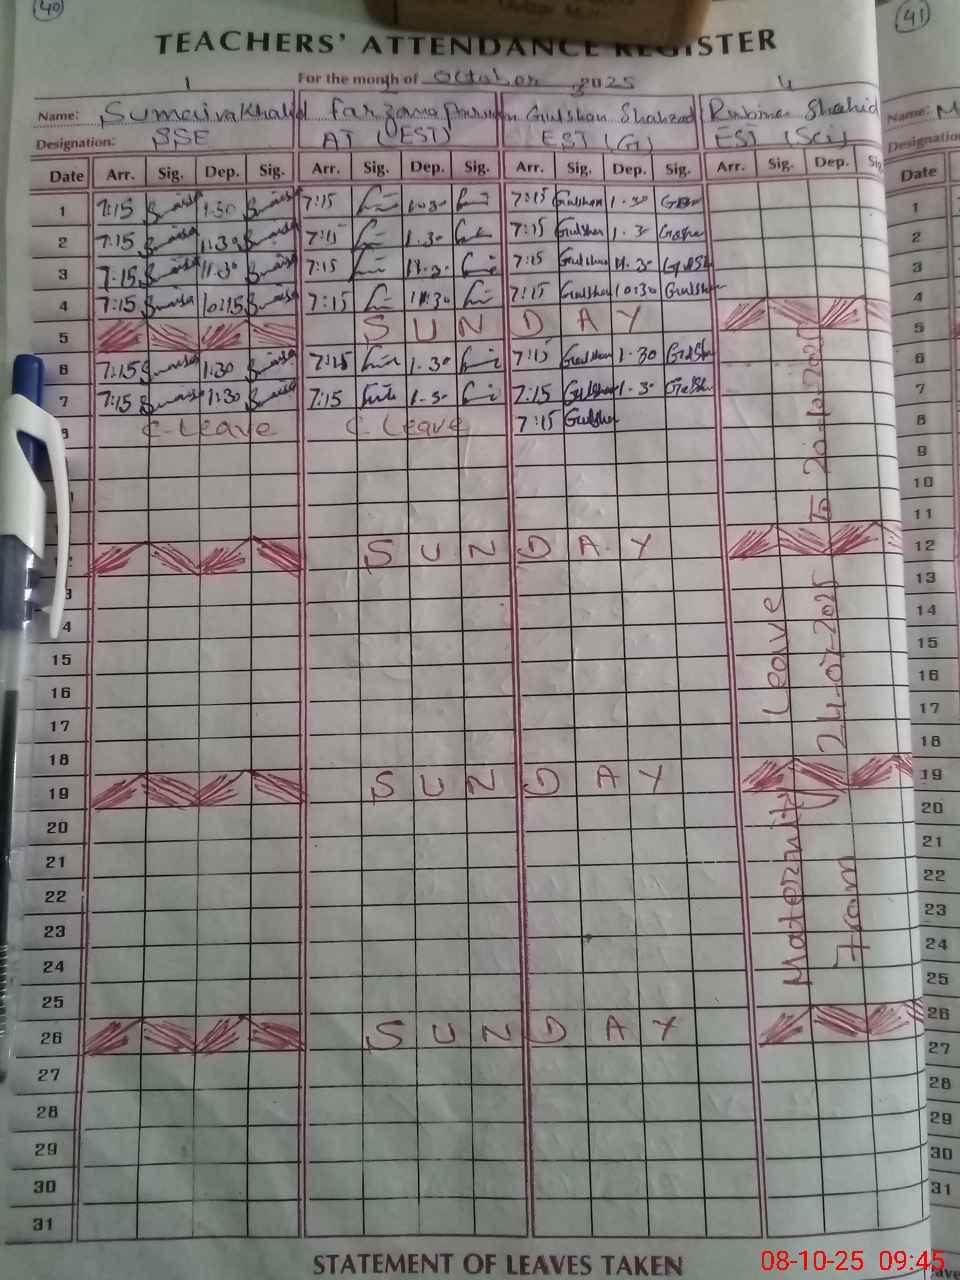 40
41
TEACHERS' ATTENDANCE REGISTER
For the month of October 2025
1 4
Name: Sumaira Khalid Farzana Gulshan Shahzad Rubina Shahid
Designation: SSE AT (EST) EST (G) EST (Sci)
Date Arr. Sig. Dep. Sig. Arr. Sig. Dep. Sig. Arr. Sig. Dep. Sig. Arr. Sig. Dep. Sig
1 7:15 1.30 7:15 1.30 7:15 Gulshan 1.30
2 7:15 1.30 7:15 1.30 7:15 Gulshan 1.30
3 7:15 11.30 7:15 11.30 7:15 Gulshan 11.30 Gulshan
4 7:15 10:15 7:15 7:15 Gulshan 10:30 Gulshan
5 SUNDAY
6 7:15 1:30 7:15 1.30 7:15 Gulshan 1.30 Gulshan
7 7:15 1:30 7:15 1.30 7:15 Gulshan 1.30 Gulshan
8 C-Leave C-Leave 7:15 Gulshan
SUNDAY
15
16
17
18
19 SUNDAY
20
21
22
23
24
25
26 SUNDAY
27
28
29
30
31
Maternity Leave
From 24-07-2025 to 20-10-2025
STATEMENT OF LEAVES TAKEN
Name: M
Designation
Date
1
2
3
4
5
6
7
8
9
10
11
12
13
14
15
16
17
18
19
20
21
22
23
24
25
26
27
28
29
30
31
08-10-25 09:45